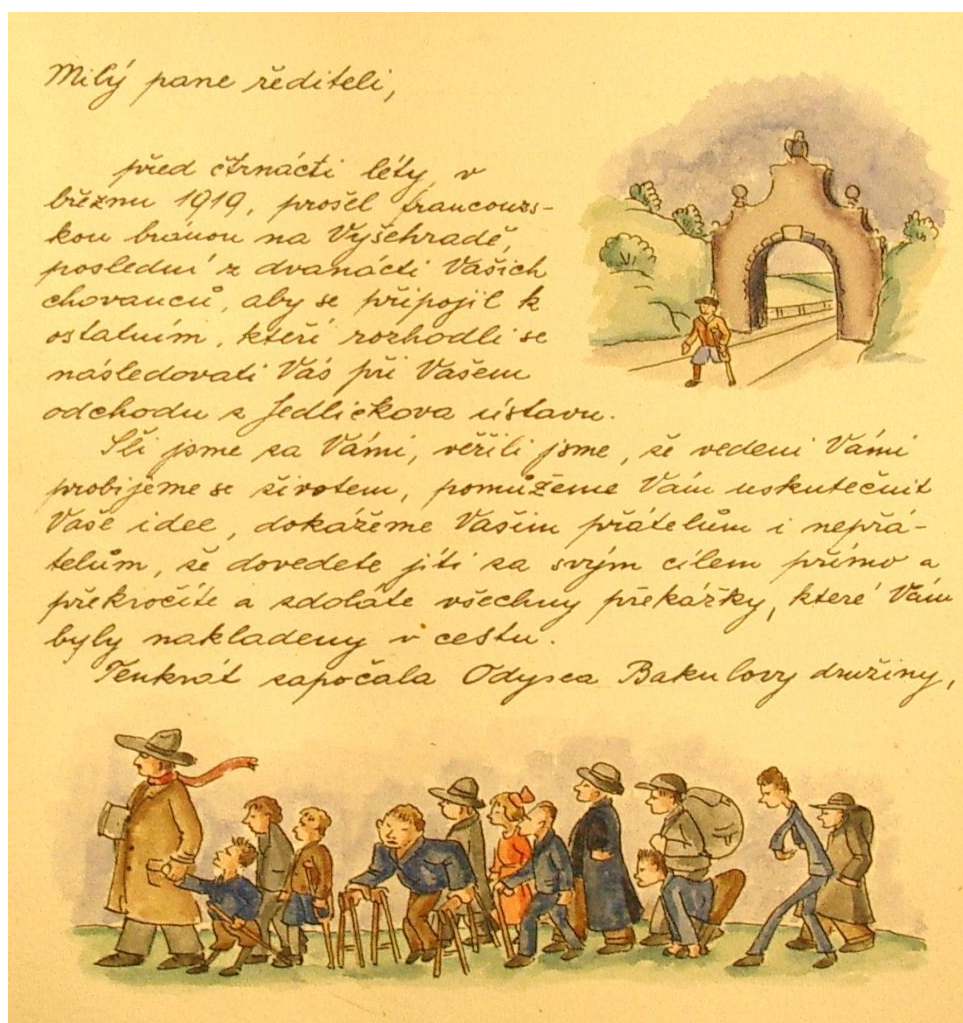 Milý pane řediteli,
před čtrnácti léty, v
březnu 1919, prošel francouzs-
kou bránou na Vyšehradě,
poslední z dvanácti Vašich
chovanců, aby se připojil k
ostatním, kteří rozhodli se
následovati Vás při Vašem
odchodu z Jedličkova ústavu.
Šli jsme za Vámi, věřili jsme, že vedeni Vámi
probijeme se životem, pomůžeme Vám uskutečnit
Vaše idee, dokážeme Vašim přátelům i nepřá-
telům, že dovedete jíti za svým cílem přímo a
překročíte a zdoláte všechny překážky, které Vám
byly nakladeny v cestu.
Tenkrát započala Odysea Bakulovy družiny,